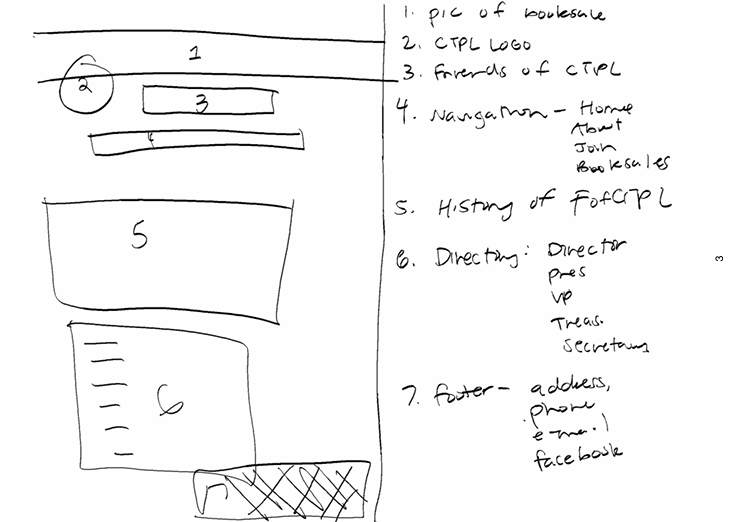 1
2
3
4
5
6
7
1. pic of booksale
2. CTPL LOGO
3. Friends of CTPL
4. Navigation - Home
About
Join
Booksales
5. History of FofCTPL
6. Directory: Director
pres
VP
Treas.
Secretary
7. footer - address,
phone
e-mail
facebook
3